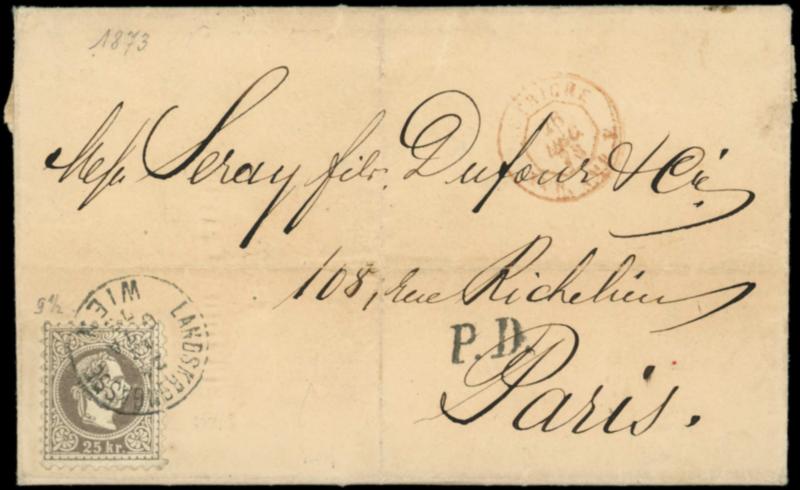 1873
Seray fils. Dufour & Cie
108, rue Richelieu
P.D.
Paris.
9½
WIEN
LANDSKRONGASSE
25 kr.